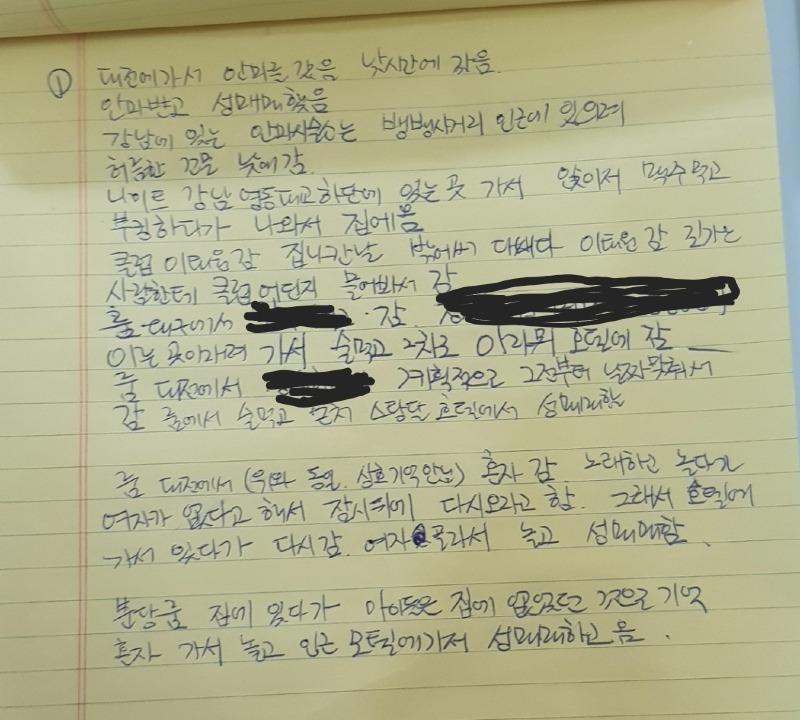 ① 대전에가서 안마를 갔음 낮시간에 갔음.
안마받고 성매매했음
강남에 있는 안마시술소는 뱅뱅사거리 인근에 있으며
허름한 건물 낮에감.
나이트 강남 영동대교하단에 있는 곳 가서 앉아서 맥주먹고
부킹하다가 나와서 집에옴
클럽 이태원감 집나간날 밖에서 다 이태원 감 길가는
사람한테 클럽 어딘지 물어봐서 감
룸. 대구에서 감.
아는 곳이라며 가서 술먹고 2차로 모텔에 감
룸 대전에서 계획적으로 그전부터 날짜맞춰서
감 룸에서 술먹고 호텔에서 성매매함
룸 대전에서 (위와 동일. 상호기억안남) 혼자 감 노래하고 놀다가
여자가 없다고 해서 잠시뒤에 다시오라고 함. 그래서 호텔에
가서 있다가 다시감. 여자 골라서 놀고 성매매함.
분당룸 집에 있다가 아이들은 집에 없었던 것으로 기억
혼자 가서 놀고 인근 모텔에가서 성매매하고 옴.